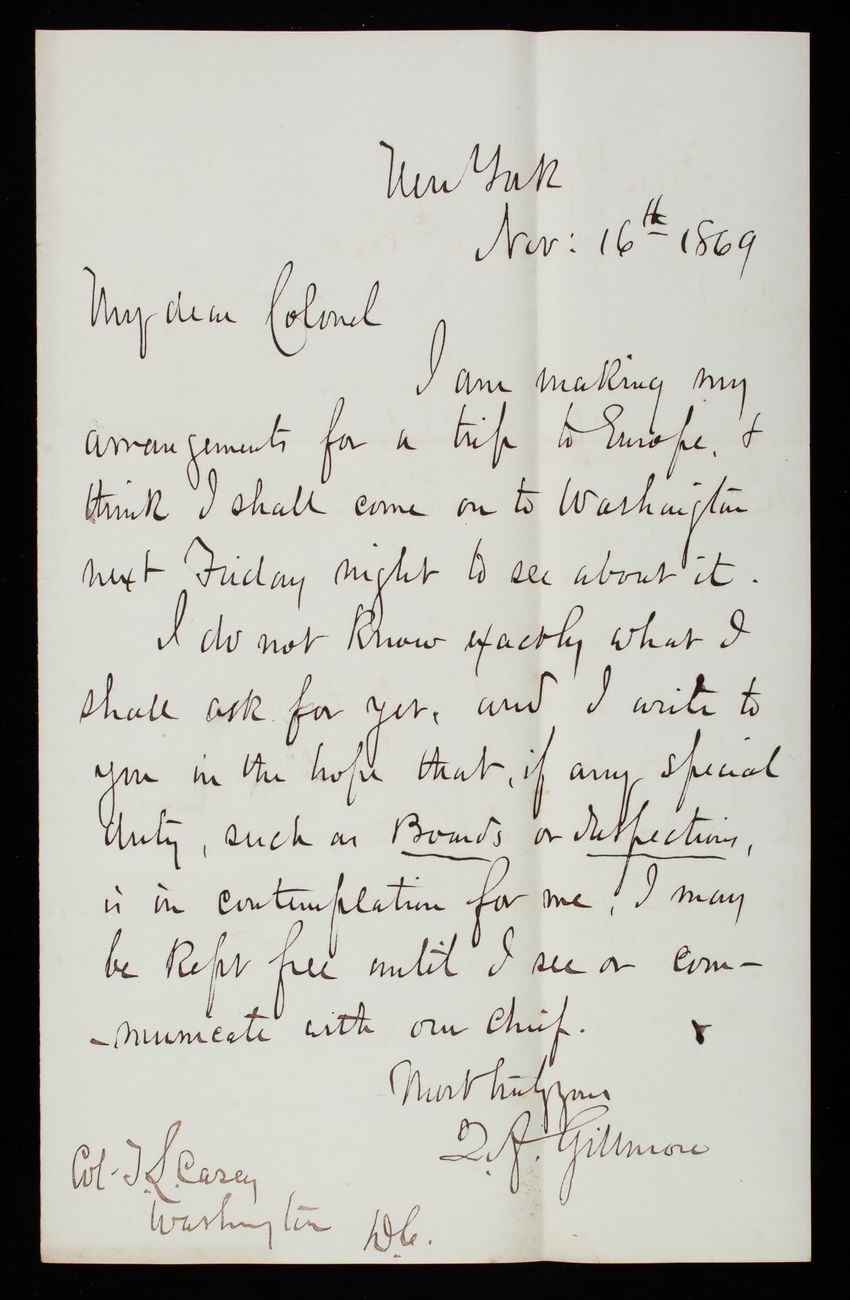 New York
Nov: 16th 1869
My dear Colonel
I am making my
arrangements for a trip to Europe, &
think I shall come on to Washington
next Friday night to see about it.
I do not know exactly what I
shall ask for yet, and I write to
you in the hope that, if any special
duty, such as Boards or Inspections,
is in contemplation for me, I may
be kept free until I see or com-
-municate with our Chief.
Most truly yours
Q. A. Gillmore
Col. T. L. Casey
Washington D.C.